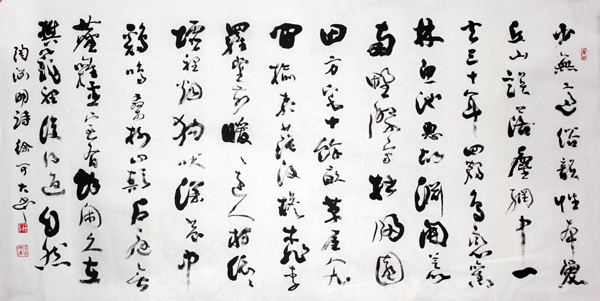 少無適俗韻性本愛
丘山誤落塵網中一
去三十年羈鳥戀舊
林魚池思故淵開荒
南野際守拙歸園
田方宅十餘畝草屋八九
間榆柳蔭後檐桃李
羅堂前曖曖遠人村依依
墟里煙狗吠深巷中
鷄鳴桑樹巔戶庭無
塵雜虛室有餘閑久在
樊籠裡復得返自然
陶淵明詩 徐可大書